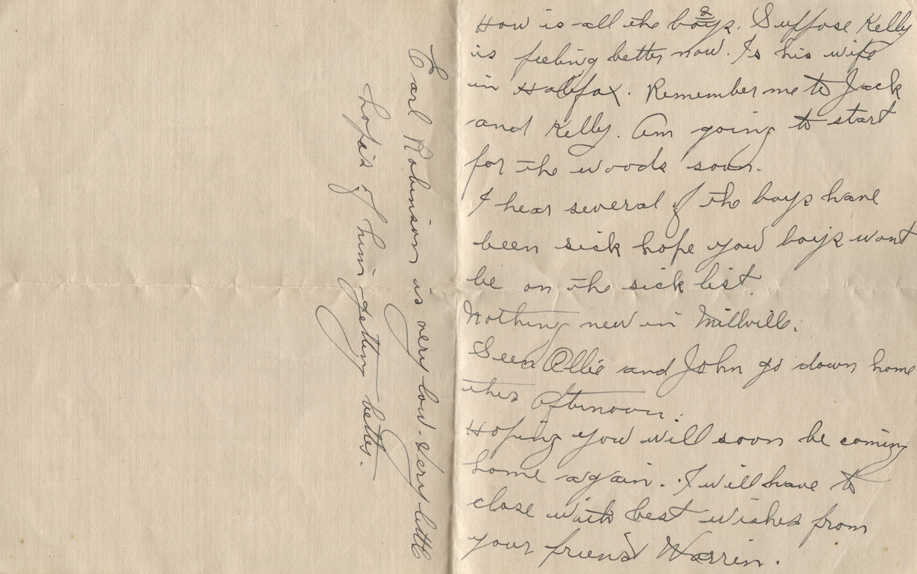 How is all the boys. Suppose Kelly
is feeling better now. Is his wife
in Halifax. Remember me to Jack
and Kelly. Am going to start
for the woods soon.
I hear several of the boys have
been sick hope you boys wont
be on the sick list.
Nothing new in Millville.
Seen Ollie and John go down home
this afternoon.
Hoping you will soon be coming
home again. I will have to
close with best wishes from
your friend Warren.
Earl Robinson is very low. Very little
hopes of him getting better.